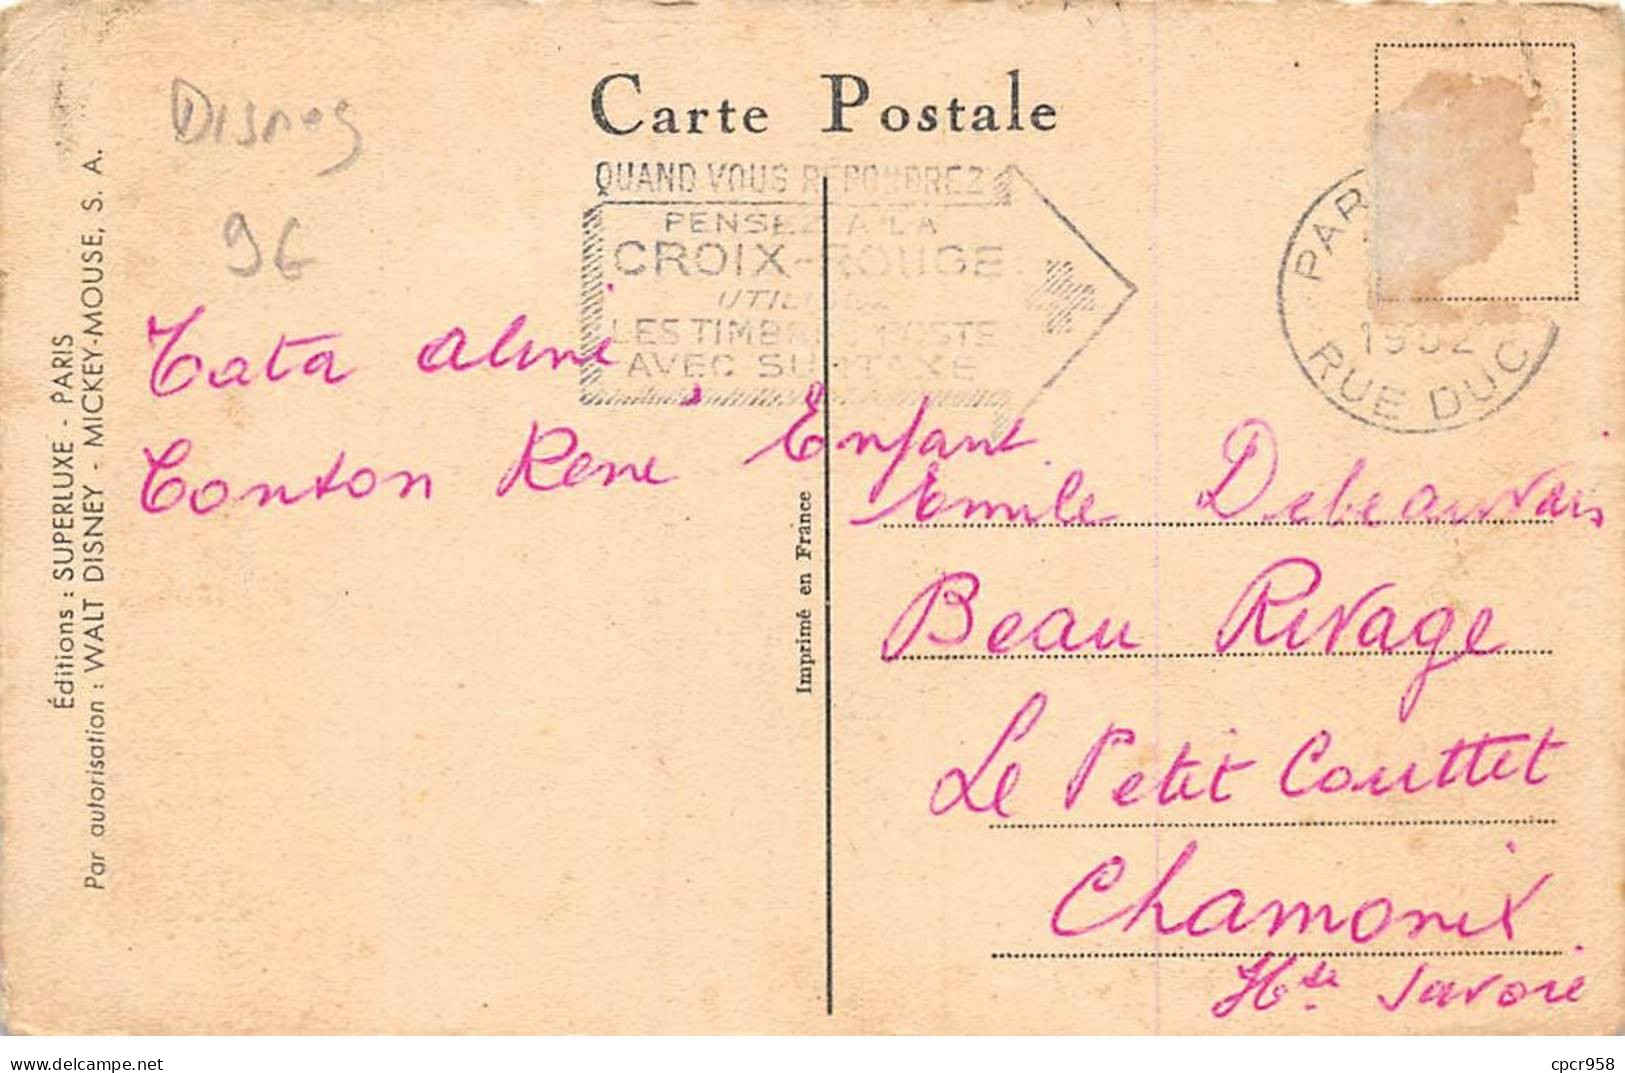 Carte Postale
Disney
96
QUAND VOUS RÉPONDREZ
PENSEZ A LA
CROIX-ROUGE
LES TIMBRES-POSTE
AVEC SURTAXE
PAR
1952
RUE DU C
Tata Aline,
Tonton René
Enfant
Emile Debeauvais
Beau Rivage
Le Petit Couttet
Chamonix
Hte Savoie
Imprimé en France
Éditions : SUPERLUXE - PARIS
Par autorisation : WALT DISNEY - MICKEY-MOUSE, S. A.
https://www.delcampe.net
cpcr958